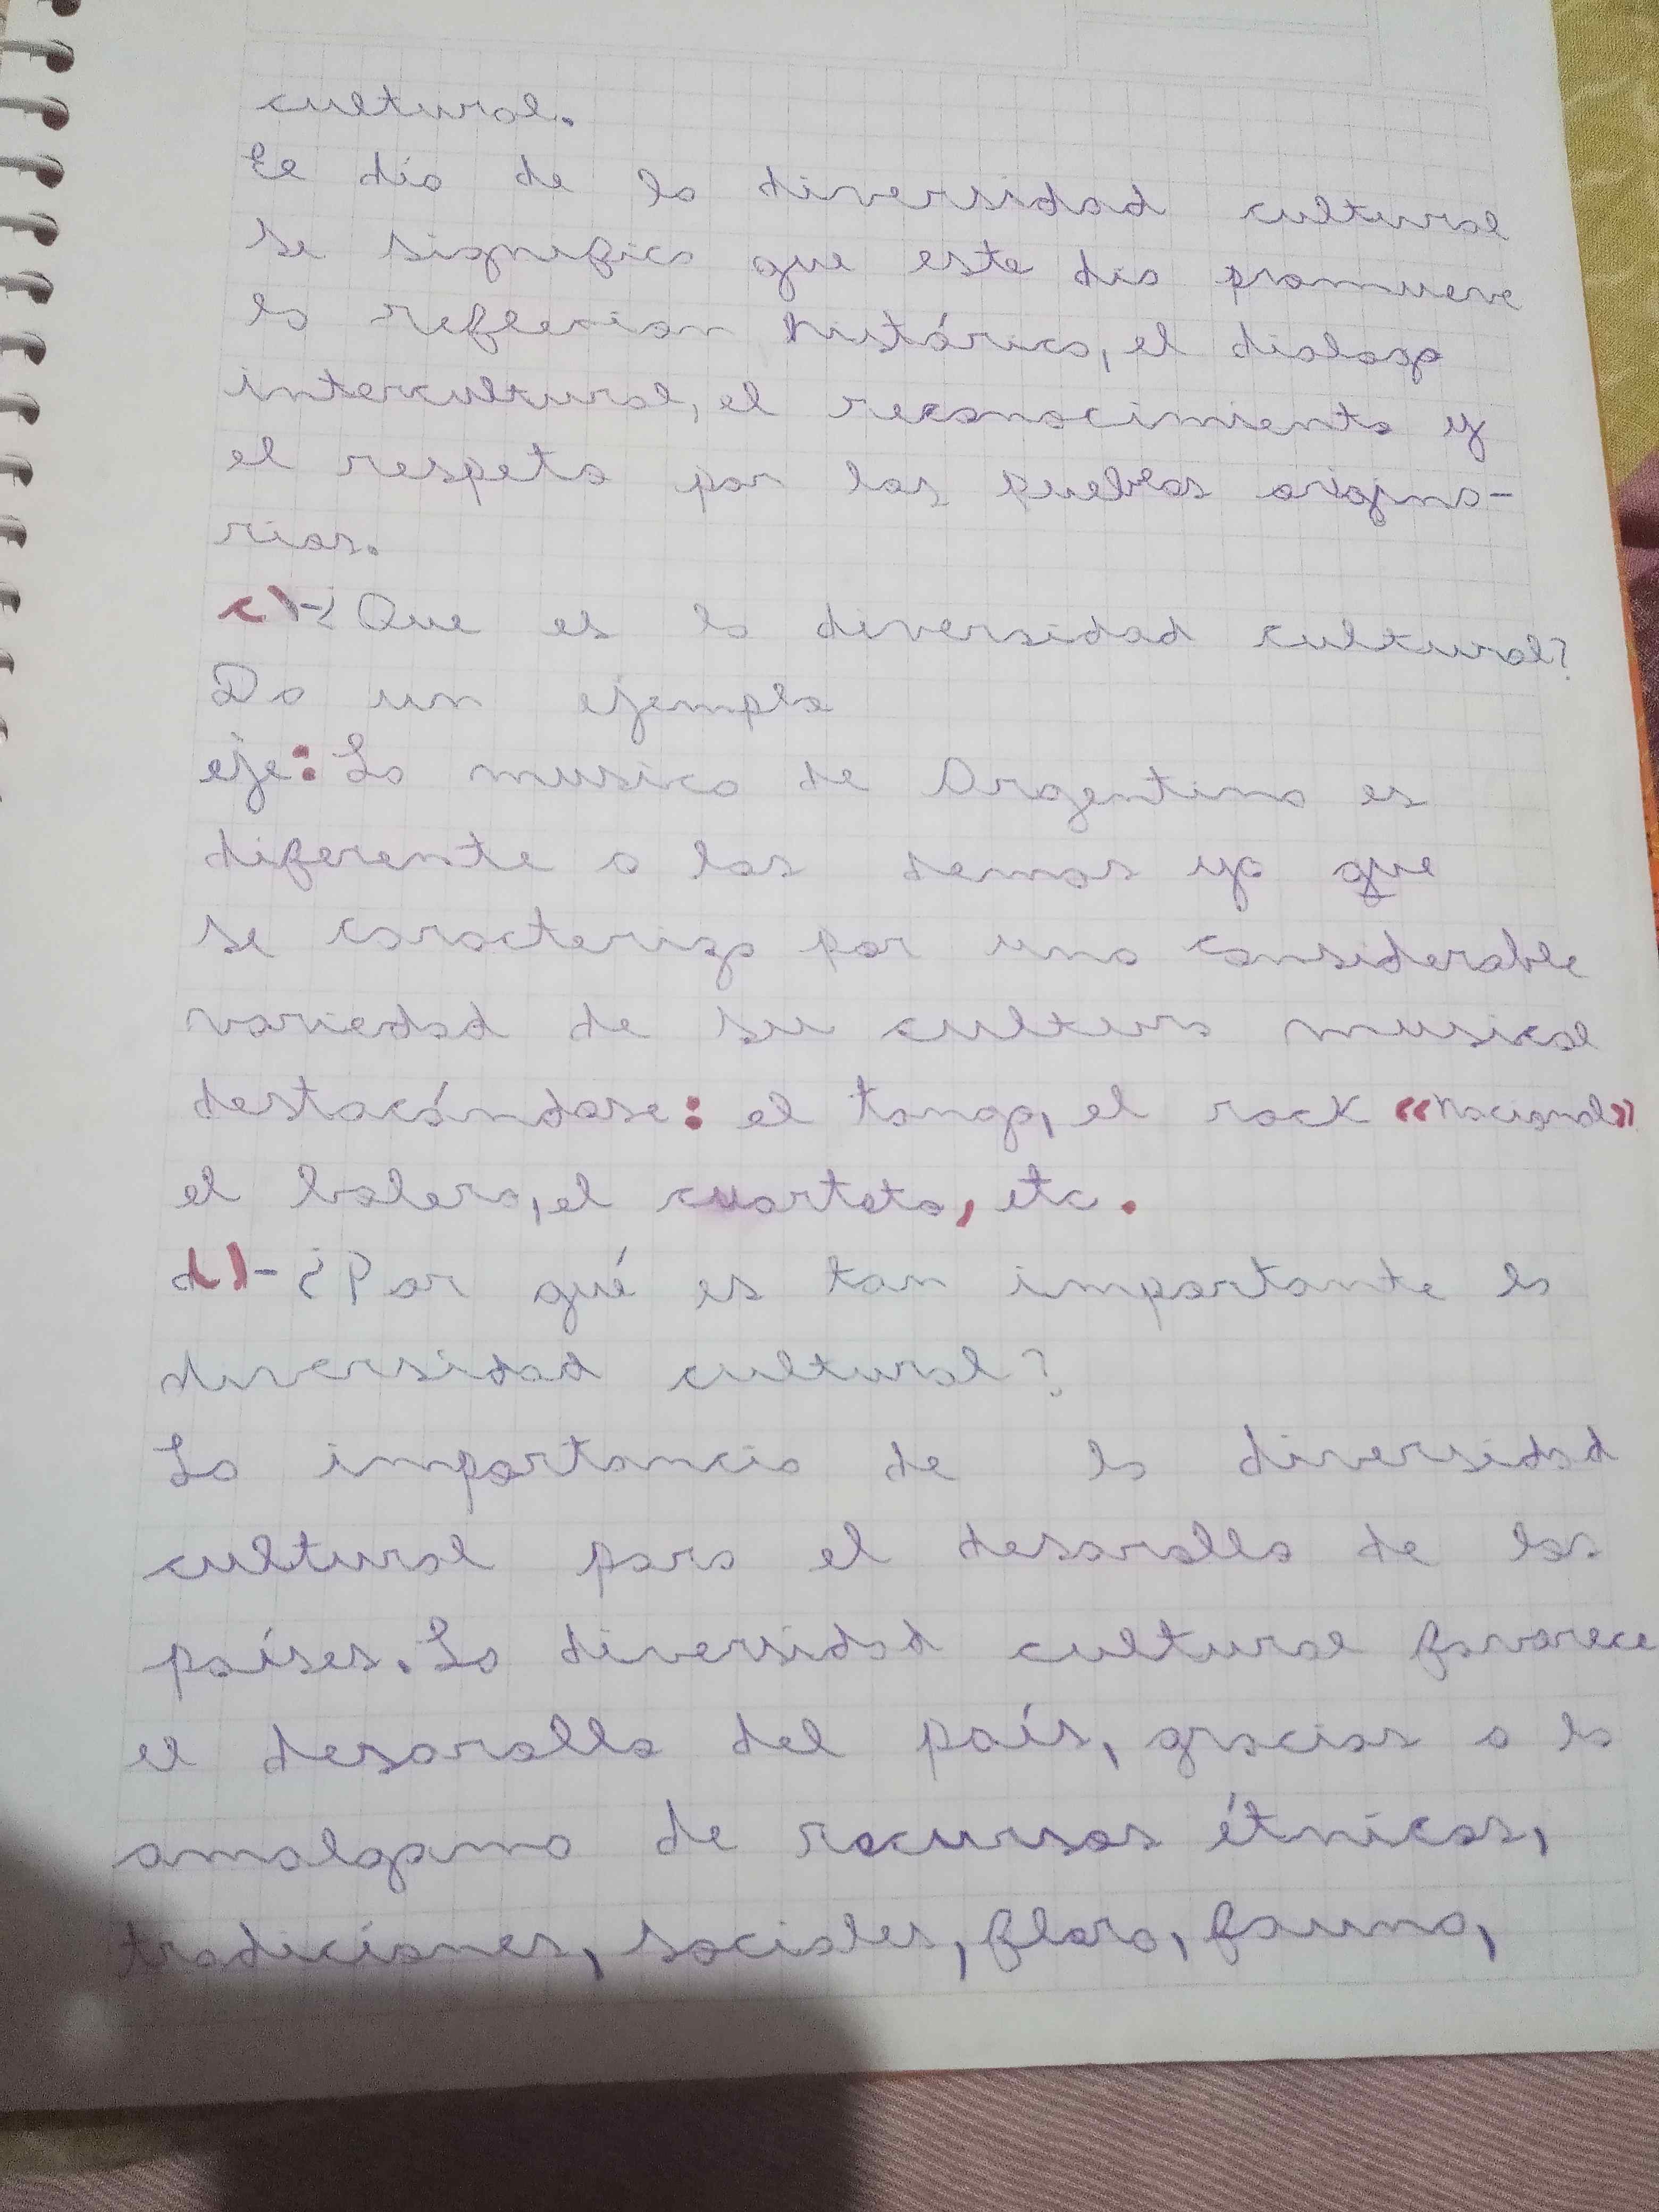 cultural.
El día de la diversidad cultural
se significa que este dia promueve
la reflexion histórica, el dialogo
intercultural, el reconocimiento y
el respeto por los pueblos origina-
rios.
c)-¿Que es la diversidad cultural?
Da un ejemplo
eje: La musica de Argentina es
diferente a las demas ya que
se caracteriza por una considerable
variedad de su cultura musical
destacándose: el tango, el rock «Nacional»
el bolero, el cuarteto, etc.
d)-¿Por qué es tan importante la
diversidad cultural?
La importancia de la diversidad
cultural para el desarollo de los
países. La diversidad cultural favorece
el desarollo del país, gracias a la
amalgama de recursos étnicos,
tradiciones, sociales, flora, fauna,